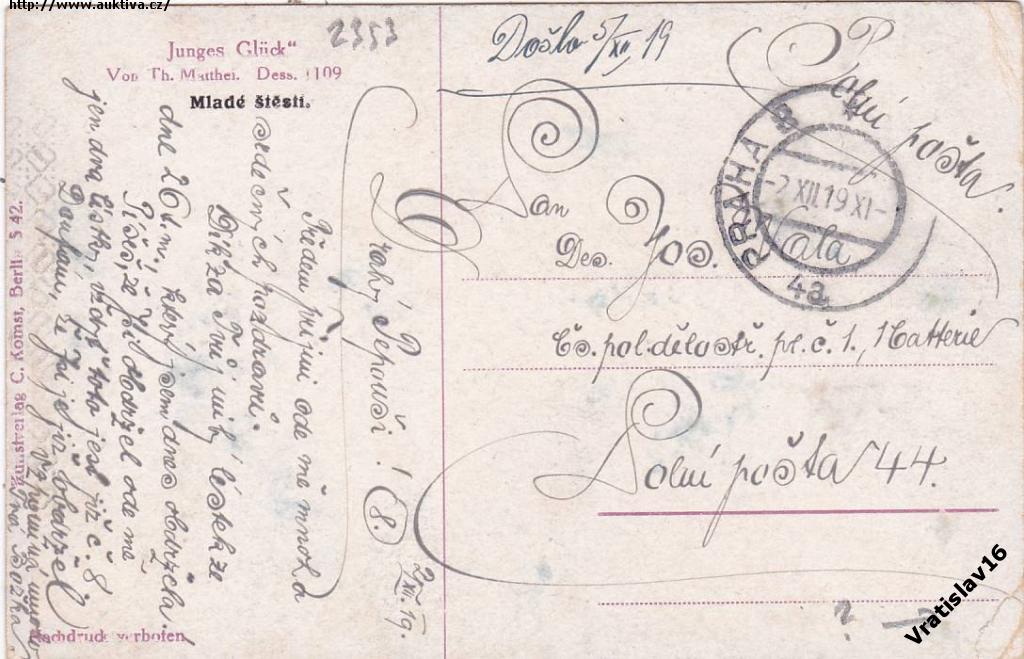 http://www.auktiva.cz/
2353
Junges Glück"
Von Th. Matthei. Dess. 1109
Mladé štěstí.
Kunstverlag C. Kornst, Berlin S 42.
Nachdruck verboten
2/XII. 19.
8.
rahý Pepouši!
Předem přijmi ode mě mnoho
srdečných pozdravů.
Dík za Tvůj milý lístek ze
dne 26.t.m., který jsem dnes obdržela.
Píšeš, že jsi obdržel ode mě
jen dva lístky, vždyť toto jest již č. 8
Doufám, že jsi je již obdržel.
Vzpomínku
Tvá Božka
Došlo 5/XII 19
Polní pošta.
PRAHA 3
-2 XII.19 XI-
4a
Pan
Des. Jos. Vala
Čs. pol. dělostř. pl. č. 1, Batterie
Polní pošta 44.
Vratislav16